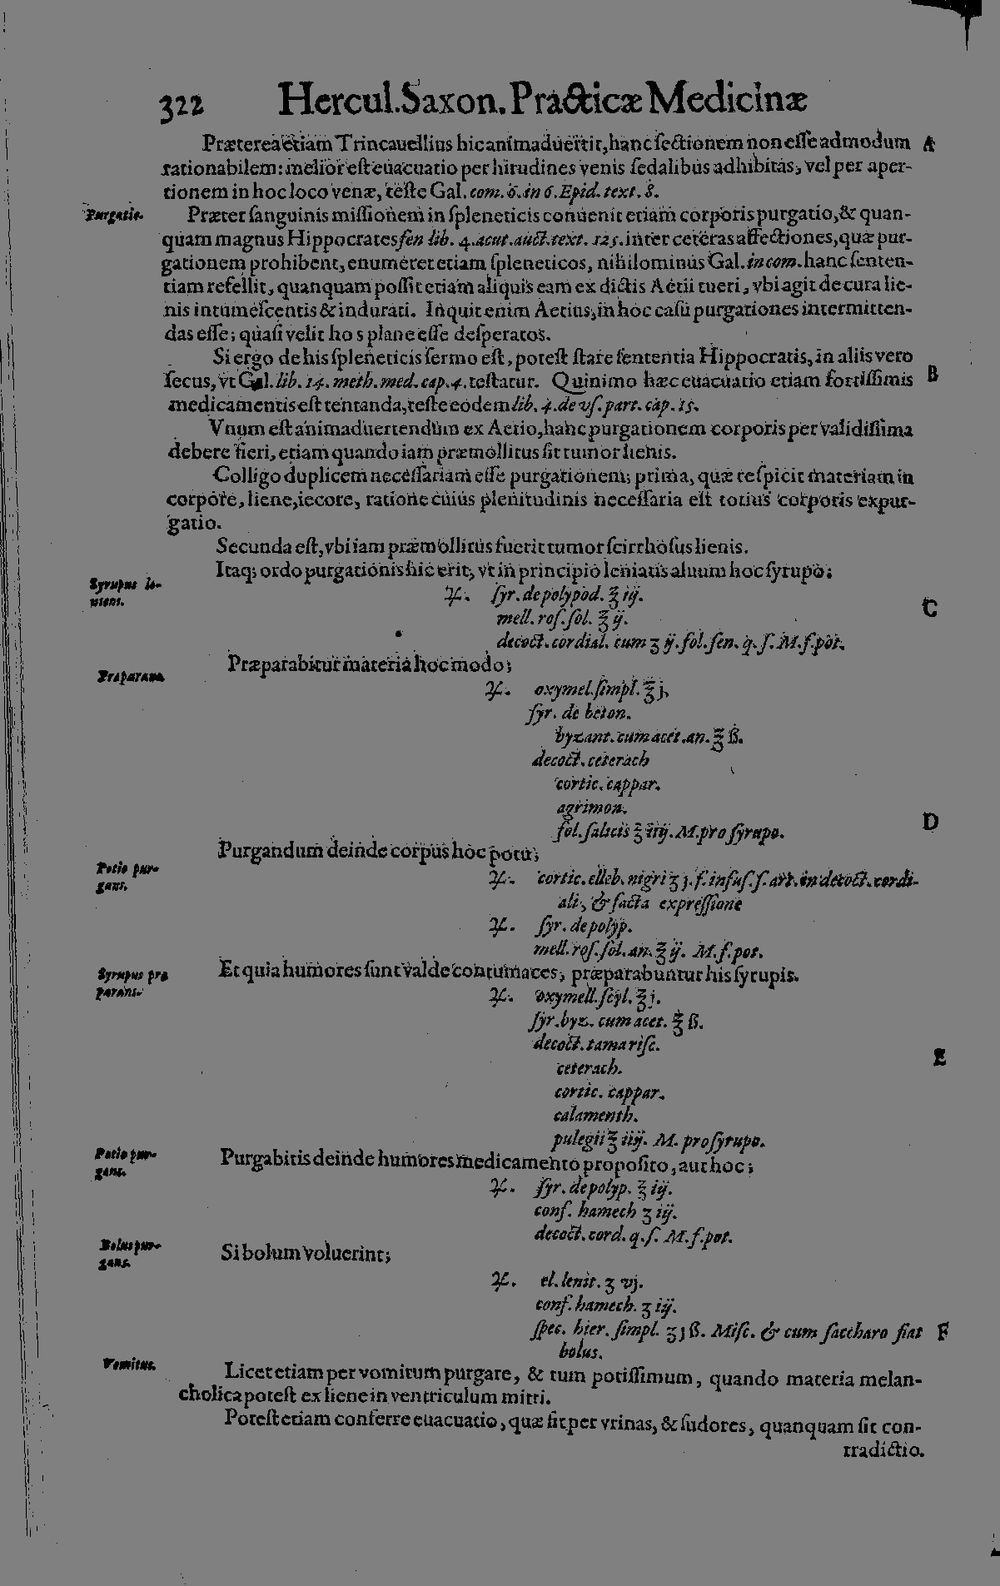 322 Hercul. Saxon. Practicæ Medicinæ
Præterea etiam Trincauellius hic animaduertit, hanc sectionem non esse admodum A
rationabilem: melior est euacuatio per hirudines venis sedalibus adhibitas, vel per aper-
tionem in hoc loco venæ, teste Gal. com. 6. in 6. Epid. text. 8.
Purgatio. Præter sanguinis missionem in spleneticis conuenit etiam corporis purgatio, & quan-
quam magnus Hippocrates sen lib. 4. acut. auct. text. 125. inter ceteras affectiones, quæ pur-
gationem prohibent, enumeret etiam spleneticos, nihilominus Gal. in com. hanc senten-
tiam refellit, quanquam possit etiam aliquis eam ex dictis Aetii tueri, vbi agit de cura lie-
nis intumescentis & indurati. Inquit enim Aetius, in hoc casu purgationes intermitten-
das esse; quasi velit hos plane esse desperatos.
Si ergo de his spleneticis sermo est, potest stare sententia Hippocratis, in aliis vero
secus, vt Gal. lib. 14. meth. med. cap. 4. testatur. Quinimo hæc euacuatio etiam fortissimis B
medicamentis est tentanda, teste eodem lib. 4. de vs. part. cap. 15.
Vnum est animaduertendum ex Aetio, hanc purgationem corporis per validissima
debere fieri, etiam quando iam præmollitus sit tumor lienis.
Colligo duplicem necessariam esse purgationem; prima, quæ respicit materiam in
corpore, liene, iecore, ratione cuius plenitudinis necessaria est totius corporis expur-
gatio.
Secunda est, vbi iam præmollitus fuerit tumor scirrhosus lienis.
Itaq; ordo purgationis hic erit, vt in principio leniatis aluum hoc syrupo;
Syrupus le-
niens.
♃. syr. de polypod. ℥ iij.
mell. ros. sol. ℥ ij. C
decoct. cordial. cum ʒ ij. fol. sen. q. s. M. f. pot.
Præparans. Præparabitur materia hoc modo;
♃. oxymel. simpl. ℥ j,
syr. de beton.
byzant. cum acet. an. ℥ ß.
decoct. ceterach
cortic. cappar.
agrimon.
fol. salicis ℥ iiij. M. pro syrupo. D
Purgandum deinde corpus hoc potu;
Potio pur-
gans.
♃. cortic. elleb. nigri ʒ j. f. infus. s. art. in decoct. cordi-
ali, & facta expressione
♃. syr. de polyp.
mell. ros. sol. an. ℥ ij. M. f. pot.
Syrupus præ
parans. Et quia humores sunt valde contumaces, præparabuntur his syrupis.
♃. oxymell. scyl. ℥ j.
syr. byz. cum acet. ℥ ß.
decoct. tamarisc.
ceterach. E
cortic. cappar.
calamenth.
pulegii ℥ iiij. M. pro syrupo.
Potio pur-
gans. Purgabitis deinde humores medicamento proposito, aut hoc;
♃. syr. de polyp. ℥ iij.
conf. hamech ʒ iij.
decoct. cord. q. s. M. f. pot.
Bolus pur-
gans. Si bolum voluerint;
♃. el. lenit. ʒ vj.
conf. hamech. ʒ iij.
spec. hier. simpl. ʒ j ß. Misc. & cum saccharo fiat F
bolus.
Vomitus. Licet etiam per vomitum purgare, & tum potissimum, quando materia melan-
cholica potest ex liene in ventriculum mitti.
Potest etiam conferre euacuatio, quæ fit per vrinas, & sudores, quanquam sit con-
tradictio.